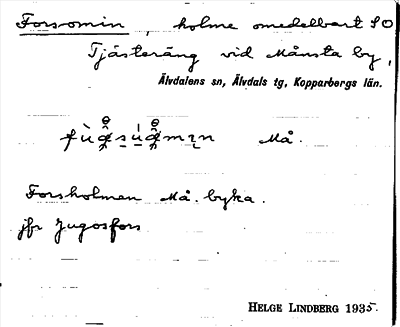 Forsomin, holme omedelbart SO
Tjästeräng vid Månsta by,
Älvdalens sn, Älvdals tg, Kopparbergs län.
Må.
Forsholmen Må. byka.
jfr Jugosfors
HELGE LINDBERG 1935.